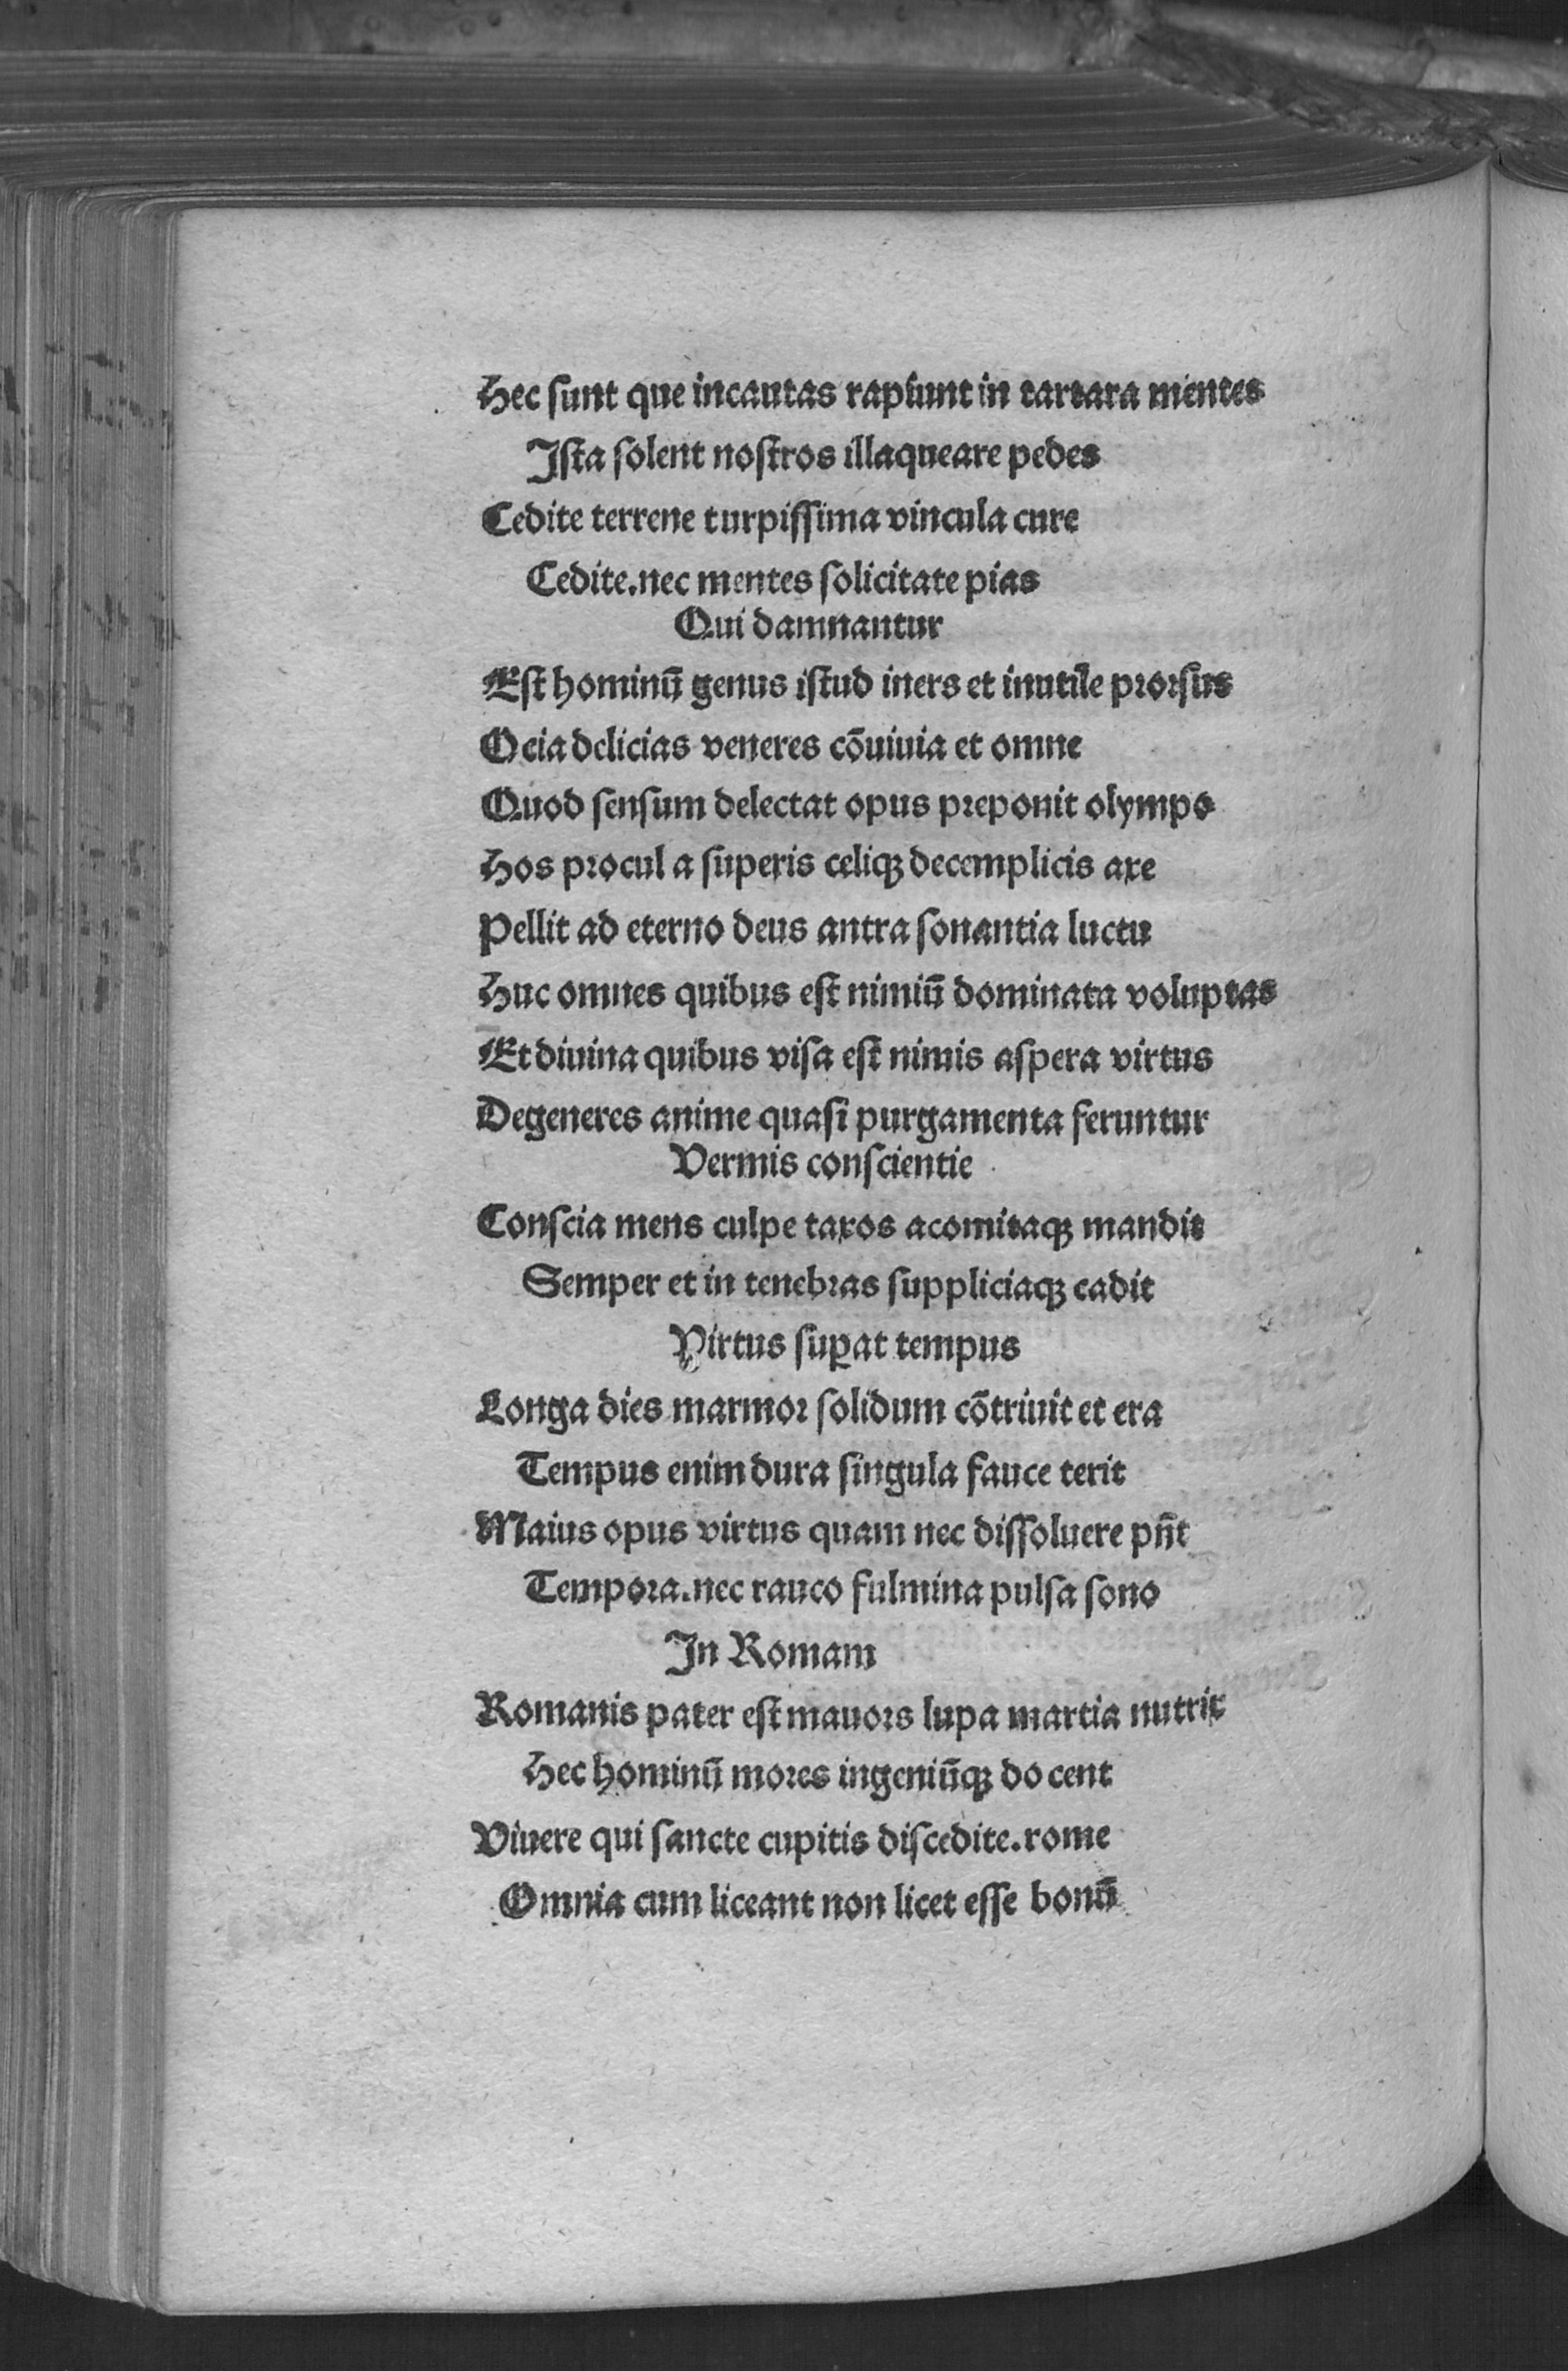 Hec sunt que incautas rapiunt in tartara mentes
Ista solent nostros illaqueare pedes
Cedite terrene turpissima vincula cure
Cedite.nec mentes solicitate pias
Qui damnantur
Est hominū genus istud iners et inutile prorsus
Ocia delicias veneres cōuiuia et omne
Quod sensum delectat opus preponit olympo
Hos procul a superis celiqꝫ decemplicis axe
Pellit ad eterno deus antra sonantia luctu
Huc omnes quibus est nimiū dominata voluptas
Et diuina quibus visa est nimis aspera virtus
Degeneres anime quasi purgamenta feruntur
Vermis conscientie
Conscia mens culpe taxos acomitaqꝫ mandit
Semper et in tenebras suppliciaqꝫ cadit
Virtus suꝑat tempus
Longa dies marmor solidum cōtriuit et era
Tempus enim dura singula fauce terit
Maius opus virtus quam nec dissoluere pn̄t
Tempora.nec rauco fulmina pulsa sono
In Romam
Romanis pater est mauors lupa martia nutrit
Hec hominū mores ingeniūqꝫ do cent
Viuere qui sancte cupitis discedite.rome
Omnia cum liceant non licet esse bonū